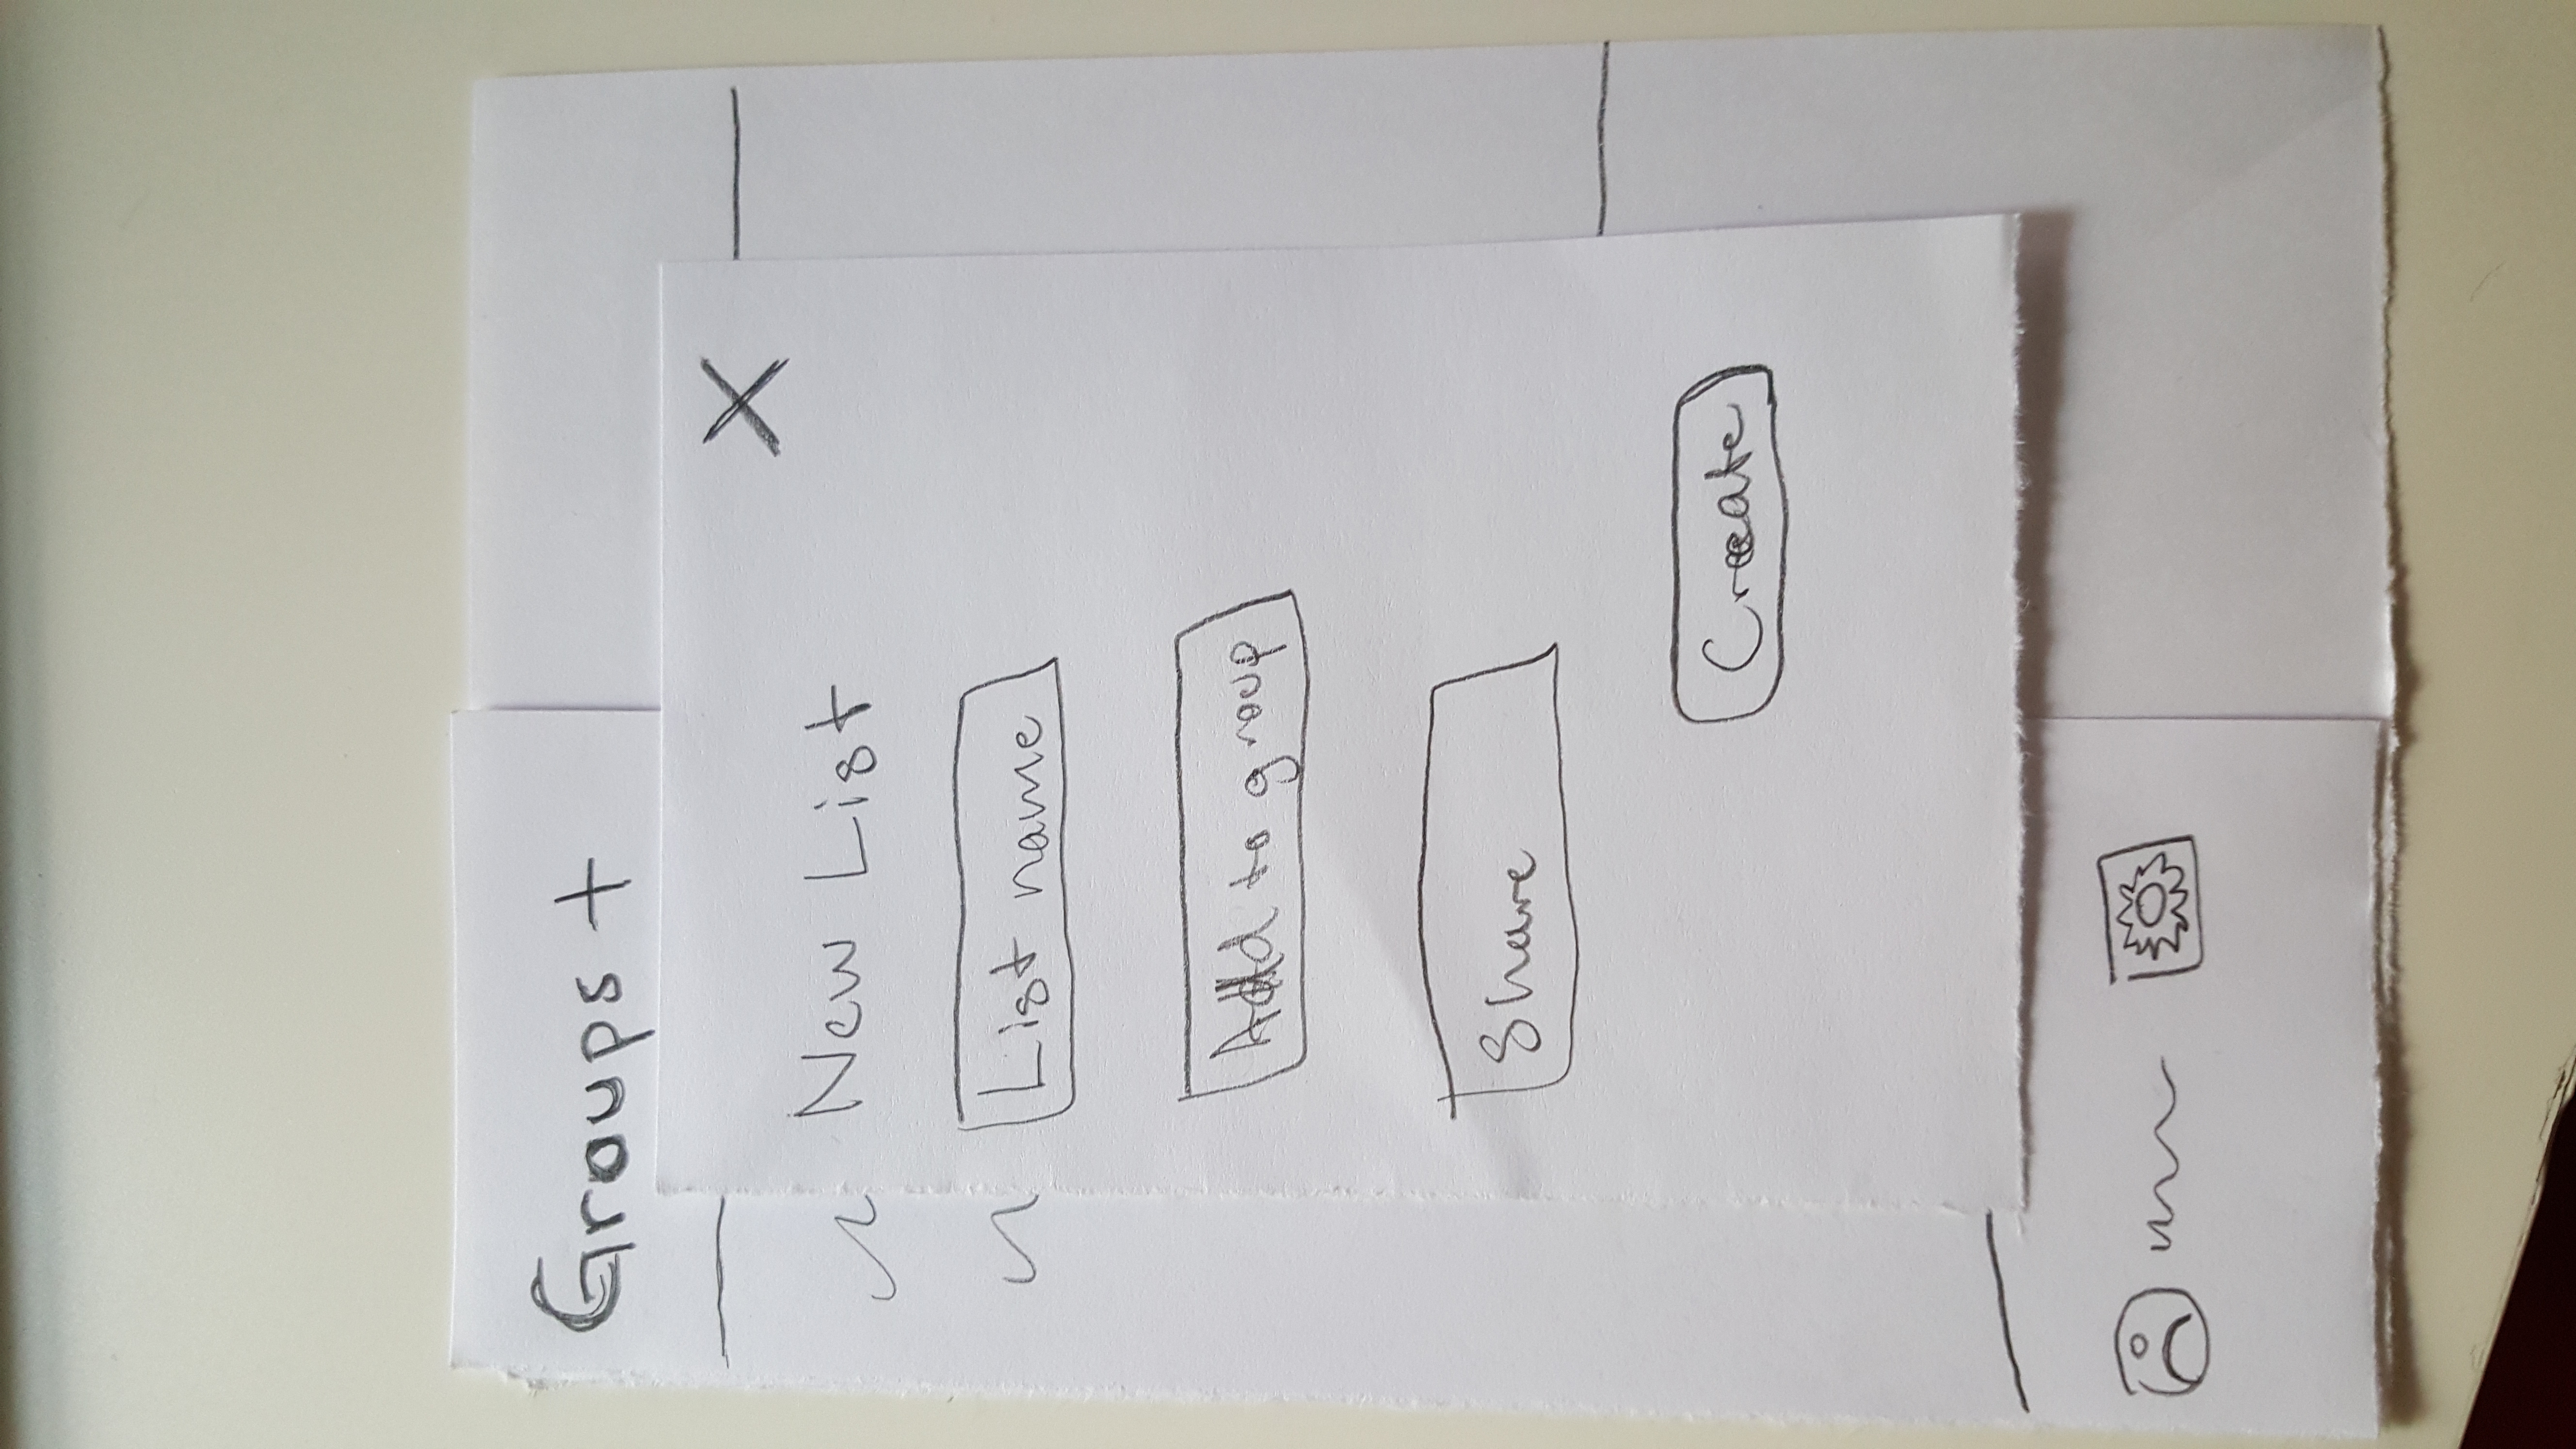 Groups +
X
New List
List name
Add to group
Share
Create